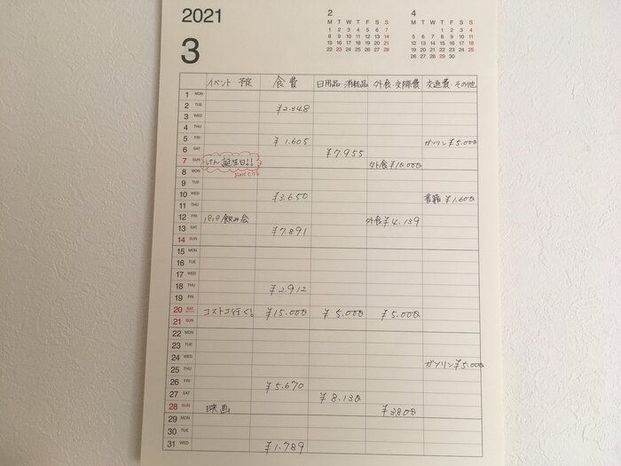 2021
3
2
M T W T F S S
1 2 3 4 5 6 7
8 9 10 11 12 13 14
15 16 17 18 19 20 21
22 23 24 25 26 27 28
4
M T W T F S S
1 2 3 4
5 6 7 8 9 10 11
12 13 14 15 16 17 18
19 20 21 22 23 24 25
26 27 28 29 30
イベント・予定 食費 日用品・消耗品 外食・交際費 交通費・その他
1 MON
2 TUE ¥2.248
3 WED
4 THU
5 FRI ¥1.605 ガソリン¥5.000
6 SAT ¥7.955
7 SUN けん誕生日!! 外食¥10.000
8 MON
9 TUE
10 WED ¥3.650 書籍¥1.600
11 THU
12 FRI 19:19飲み会 外食¥4.139
13 SAT ¥7.891
14 SUN
15 MON
16 TUE
17 WED
18 THU ¥2.912
19 FRI
20 SAT コストコ行くし ¥15.000 ¥5.000 ¥5.000
21 SUN
22 MON
23 TUE
24 WED ガソリン¥5.000
25 THU
26 FRI ¥5.670
27 SAT ¥8.130
28 SUN 映画 ¥3800
29 MON
30 TUE
31 WED ¥1.789